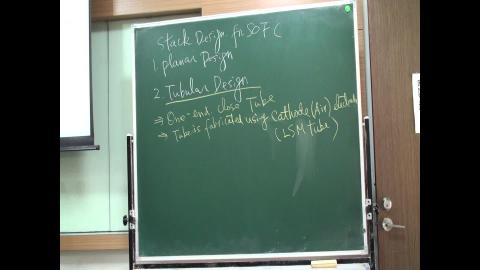 Stack Design for SOFC
1. planar Design
2. Tubular Design
⇒ One-end close Tube
⇒ Tube is fabricated using Cathode (Air) electrode
(LSM tube)